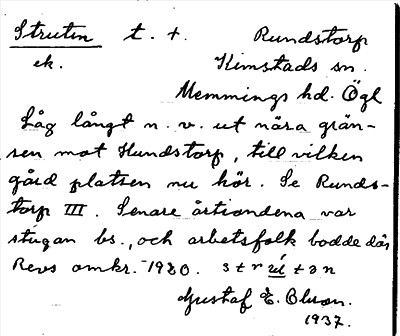 Strutin t. t. Rundstorp
ek. Kimstads sn.
Memmings hd. Ögl
Låg långt n. v. ut nära grän-
sen mot Hundstorp, till vilken
gård platsen nu hör. Se Runds-
torp III. Senare årtiondena var
stugan bs., och arbetsfolk bodde där
Revs omkr. 1920. strútən
Gustaf E. Olsson.
1937.